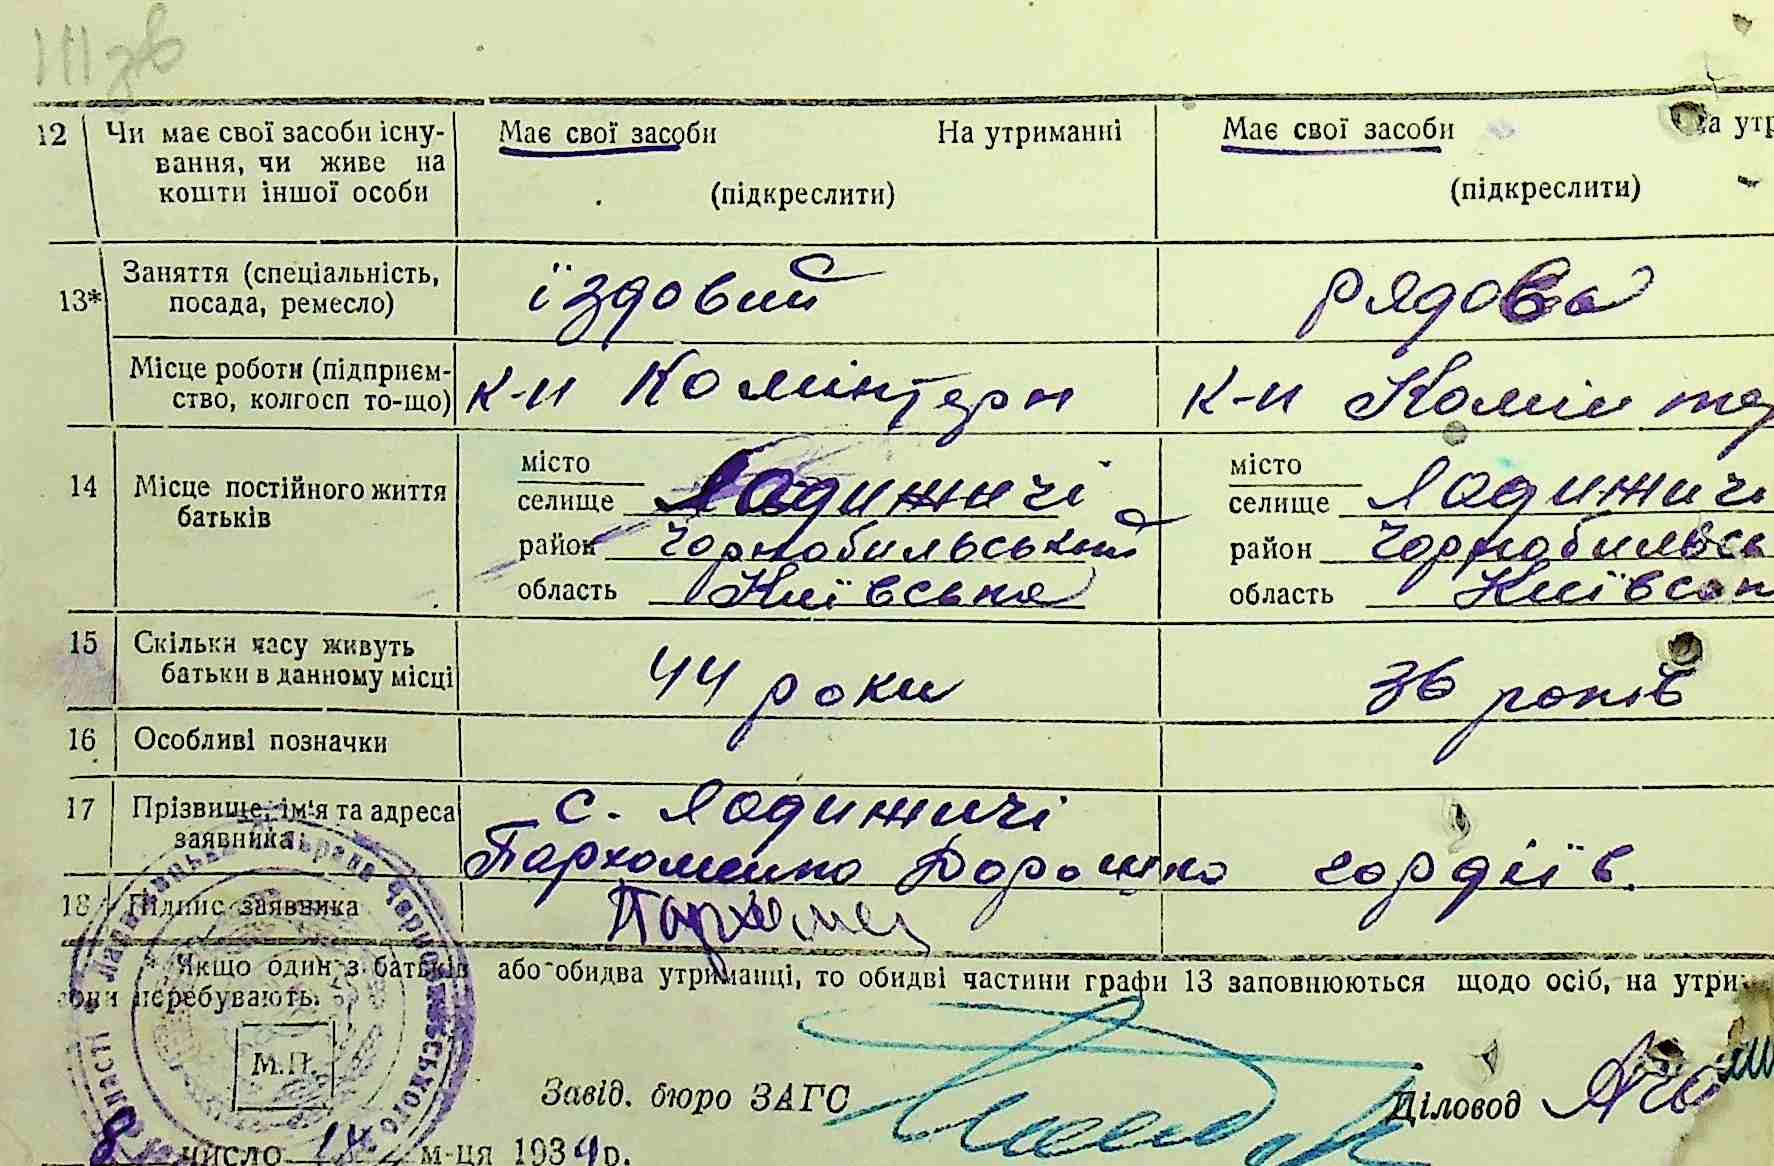 12 Чи має свої засоби існу- Має свої засоби На утриманні Має свої засоби На утр
вання, чи живе на
кошти іншої особи (підкреслити) (підкреслити)
13* Заняття (спеціальність, їздовий рядова
посада, ремесло)
Місце роботи (підприєм- к-п Комінтерн к-п Комінтер
ство, колгосп то-що)
14 Місце постійного життя місто місто
батьків селище Ладижичі селище Ладижичі
район Чорнобильський район Чорнобильсь
область Київська область Київськ
15 Скільки часу живуть 44 роки 36 років
батьки в данному місці
16 Особливі позначки
17 Прізвище, ім'я та адреса с. Ладижичі
заявника Пархоменко Дорошко Гордіїв.
18 Підпис заявника Пархомен
* Якщо один з батьків або обидва утриманці, то обидві частини графи 13 заповнюються щодо осіб, на утри
вони перебувають.
М.П.
Завід. бюро ЗАГС Діловод
8 число м-ця 1939 р.